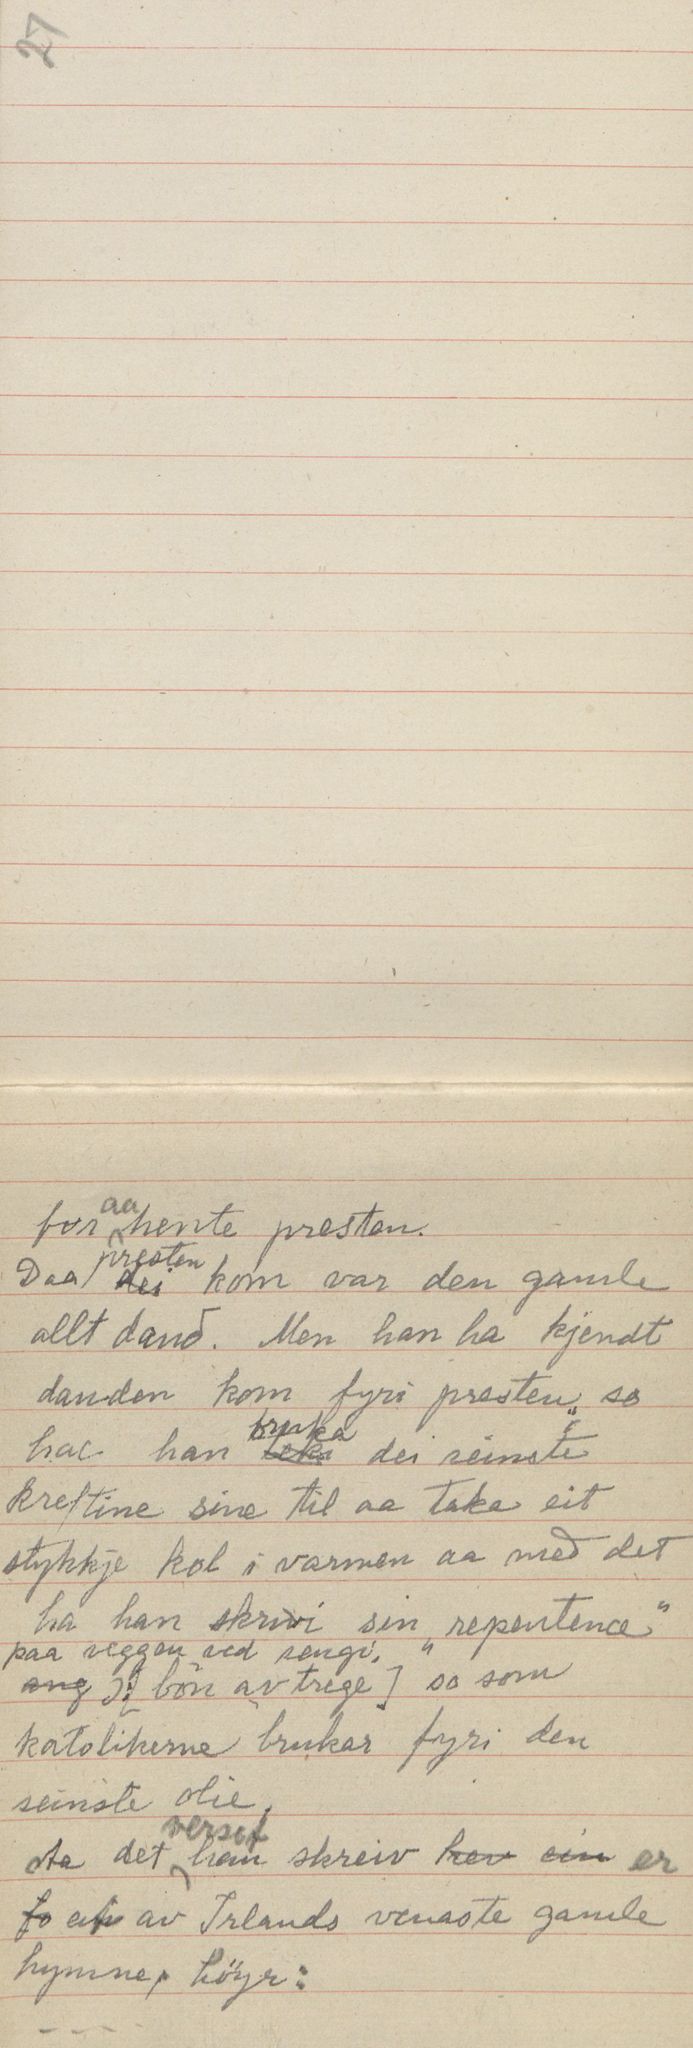 27
for aa hente presten.
Daa presten dei kom var den gamle
allt daud. Men han ha kjendt
dauden kom fyri presten, so
hae han bruka leka dei seinste
kreftine sine til aa taka eit
stykkje kol i varmen aa med det
ha han skrivi sin „repentence"
paa veggen ved sengi,
ang [„bön av trege] so som
katolikerne brukar fyri den
seinste olie.
Aa det verset han skreiv hev ein er
fo eit av Irlands venaste gamle
hymne, höyr:
- - - -